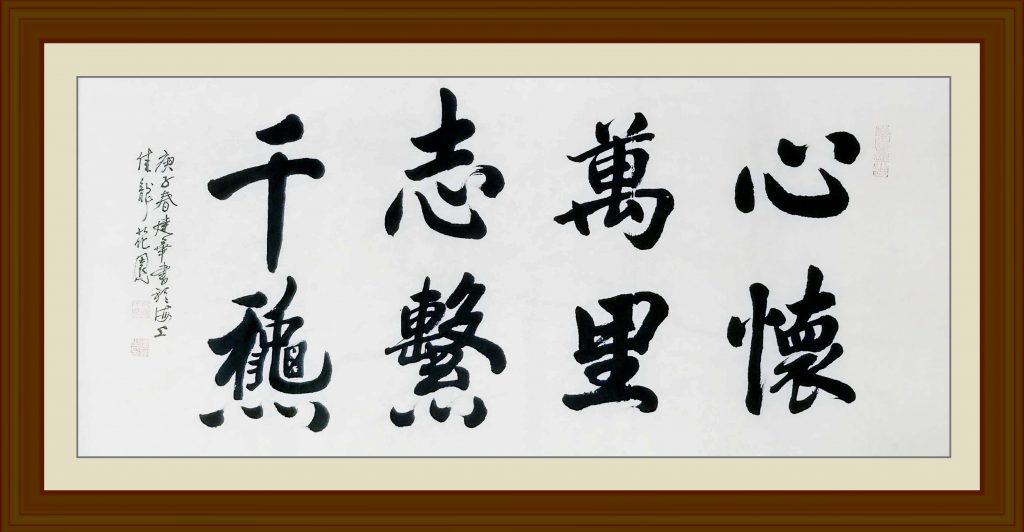 心懷
萬里
志繫
千龝
庚子春建華書於海上
佳龍花園